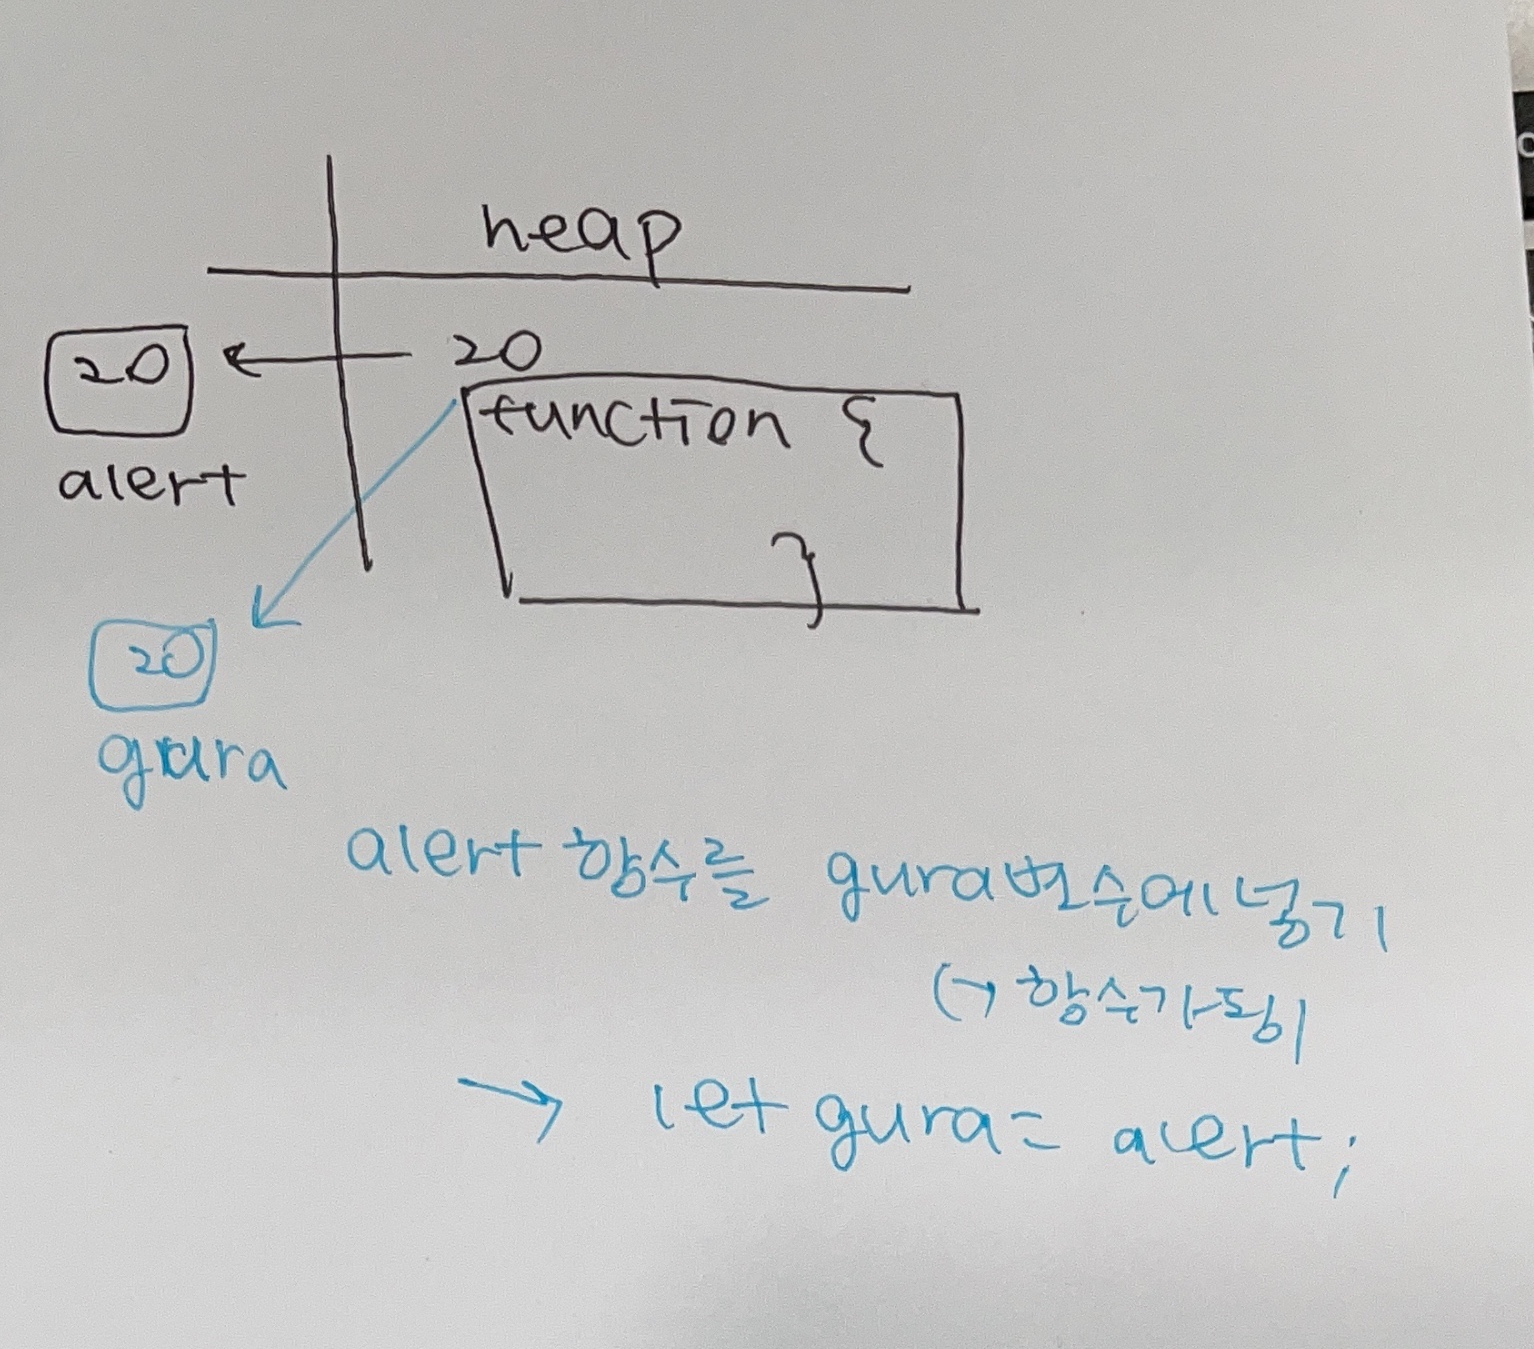 heap
20
20
function {
alert
}
20
gura
alert 함수를 gura변수에 넣기
(→ 함수가 됨)
→ let gura = alert;